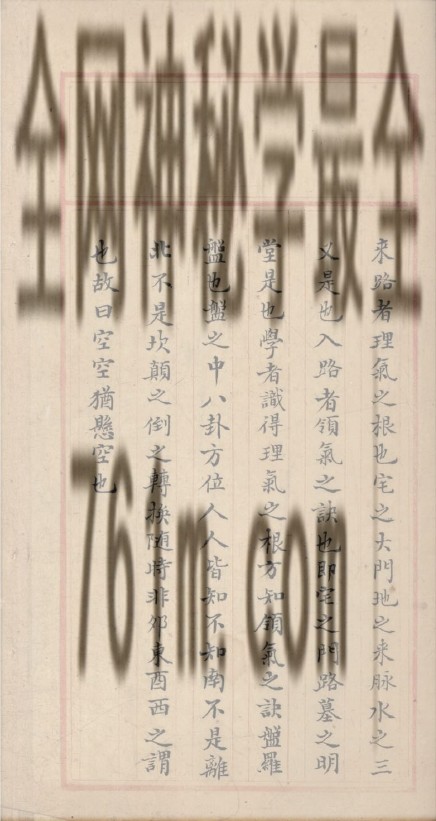 來路者理氣之根也宅之大門地之來脈水之三
叉是也入路者領氣之訣也即宅之門路墓之明
堂是也學者識得理氣之根方知領氣之訣盤羅
盤也盤之中八卦方位人人皆知不知南不是離
北不是坎顛之倒之轉換隨時非卯東酉西之謂
也故曰空空猶懸空也
全网神秘学最全